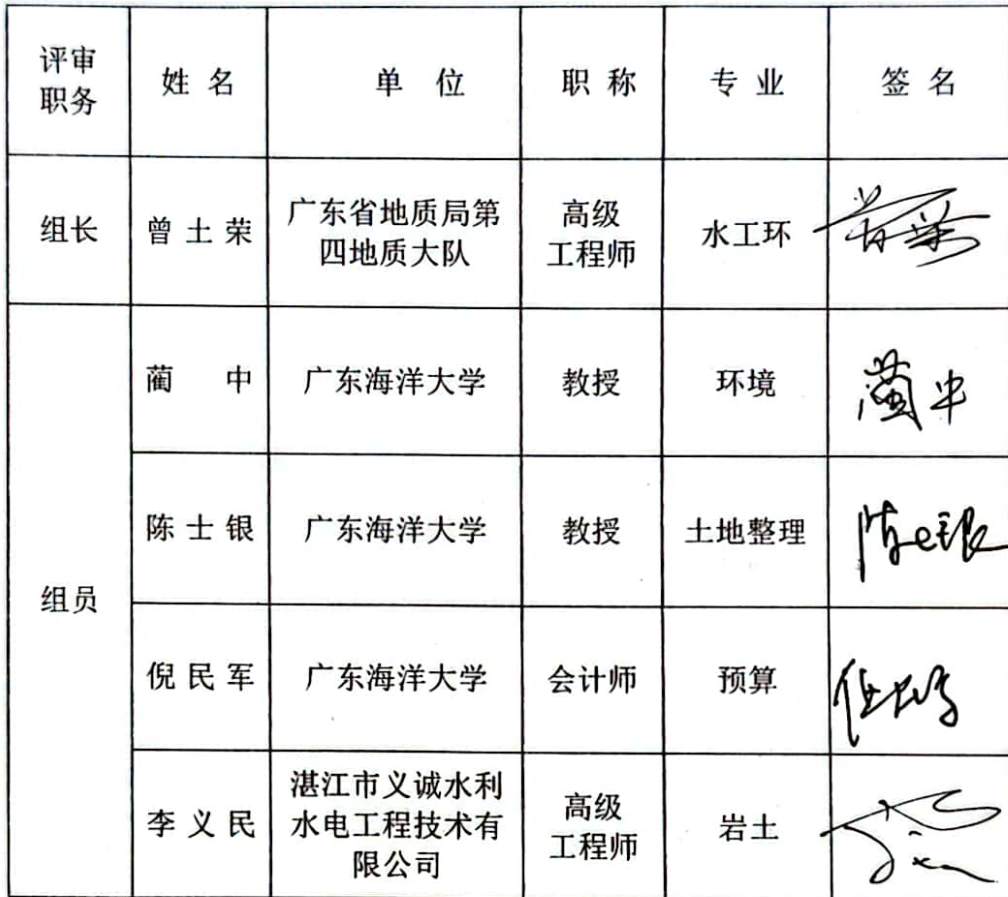 评审
职务
姓名
单位
职称
专业
签名
组长
曾土荣
广东省地质局第
四地质大队
高级
工程师
水工环
组员
蔺中
广东海洋大学
教授
环境
蔺中
陈士银
广东海洋大学
教授
土地整理
陈士银
倪民军
广东海洋大学
会计师
预算
李义民
湛江市义诚水利
水电工程技术有
限公司
高级
工程师
岩土